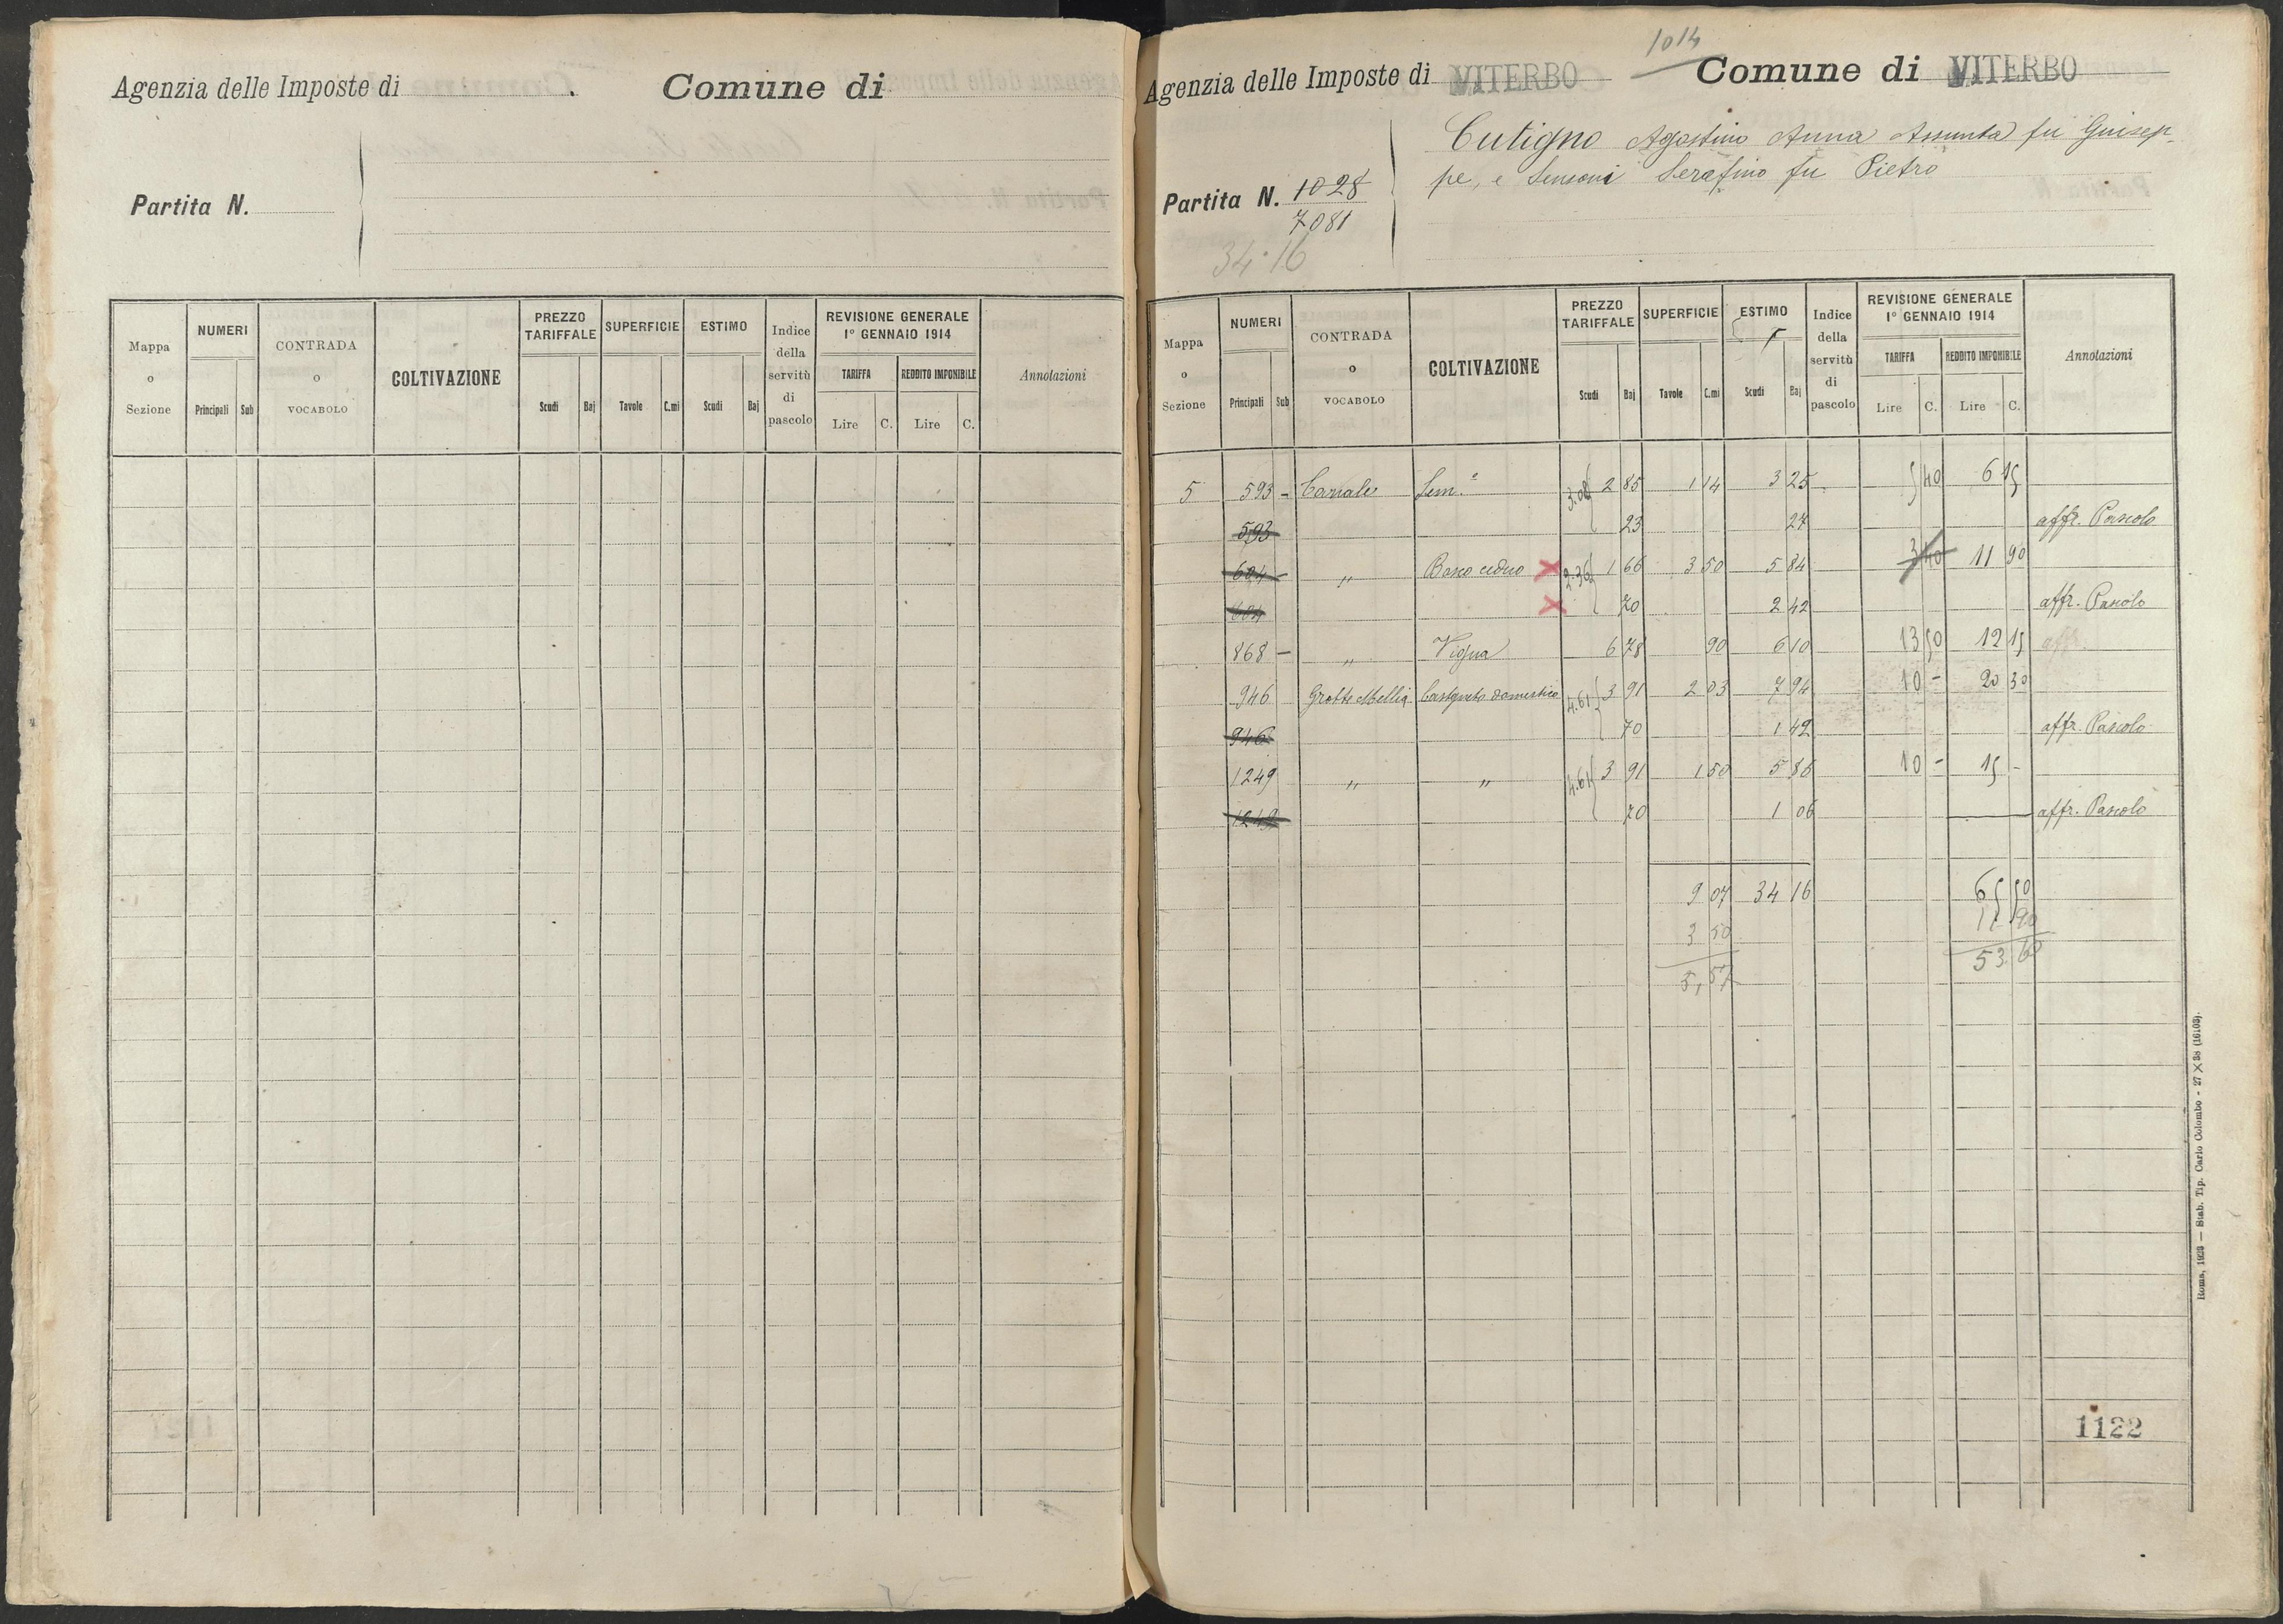 Agenzia delle Imposte di . Comune di
Partita N.
Mappa o Sezione
NUMERI
Principali Sub
CONTRADA o VOCABOLO
COLTIVAZIONE
PREZZO TARIFFALE
Scudi Baj
SUPERFICIE
Tavole C.mi
ESTIMO
Scudi Baj
Indice della servitù di pascolo
REVISIONE GENERALE 1° GENNAIO 1914
TARIFFA REDDITO IMPONIBILE
Lire C. Lire C.
Annotazioni
1014
Agenzia delle Imposte di VITERBO Comune di VITERBO
Cutigno Agostino Anna Assunta fu Guisep-
pe, e Sensoni Serafino fu Pietro
Partita N. 1028
7081
34.16
Mappa o Sezione
NUMERI
Principali Sub
CONTRADA o VOCABOLO
COLTIVAZIONE
PREZZO TARIFFALE
Scudi Baj
SUPERFICIE
Tavole C.mi
ESTIMO
Scudi Baj
Indice della servitù di pascolo
REVISIONE GENERALE 1° GENNAIO 1914
TARIFFA REDDITO IMPONIBILE
Lire C. Lire C.
Annotazioni
5 593 - Canale Sem.e 3.08 2 85 1 14 3 25 5 40 6 15
593 23 27 affr. Pascolo
604 - " Bosco ceduo X 2.36 1 66 3 50 5 84 3 40 11 90
604 X 70 2 42 affr. Pascolo
868 - " Vigna 6 78 90 6 10 13 50 12 15
946 Grotte Mellia Castgneto domestico 4.61 3 91 2 03 7 94 10 - 20 30
946 70 1 42 affr. Pascolo
1249 " " 4.61 3 91 1 50 5 86 10 - 15 -
1249 70 1 06 affr. Pascolo
9 07 34 16 65 50
3 50 11 90
5,57 53 60
1122
Roma, 1923 — Stab. Tip. Carlo Colombo - 27 X 38 (16103).